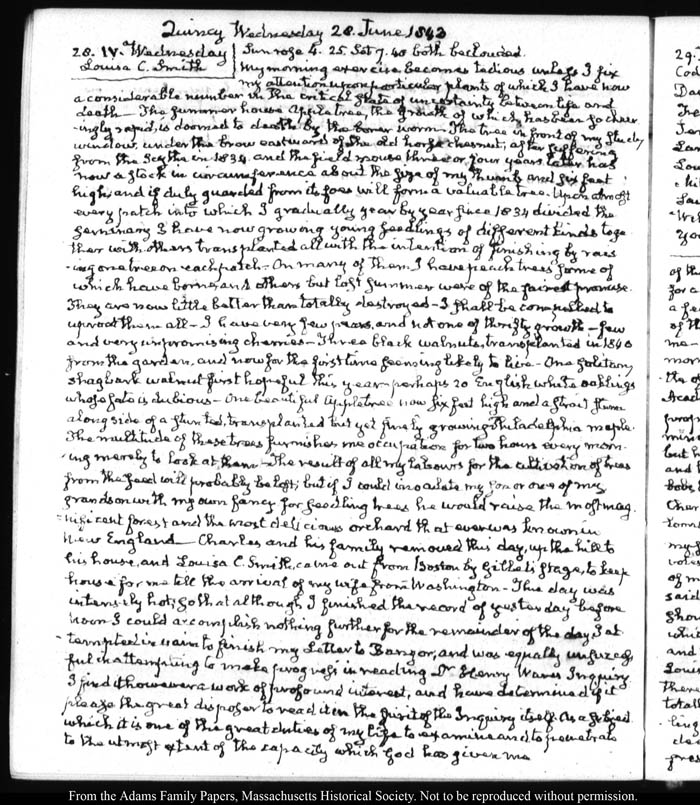 Quincy Wednesday 28. June 1843
28. IV. Wednesday Sun rose 4. 25. Set 7. 40 both beclouded.
Louisa C. Smith My morning exercise becomes tedious unless I fix
my attention upon particular plants of which I have now
a considerable number in the critical state of uncertainty between life and
death — The Summer house Apple tree, the growth of which has been so cheer-
-ingly rapid, is doomed to death by the borer worm. The tree in front of my Study
window, under the brow eastward of the old horse chesnut, after suffering
from the Scythe in 1834 and the field mouse three or four years later has
now a stock in circumference about the size of my thumb and six feet
high, and if duly guarded from its foes will form a valuable tree. Upon almost
every patch into which I gradually year by year since 1834 divided the
Seminary I have now growing young seedlings of different kinds toge-
ther with others transplanted all with the intention of finishing by rais-
-ing one tree on each patch — On many of them I have peach trees some of
which have borne, and others but last Summer were of the fairest promise.
They are now little better than totally destroyed — I shall be compelled to
uproot them all — I have very few pears, and not one of thrifty growth — few
and very unpromising cherries — Three black walnuts, transplanted in 1840
from the garden, and now for the first time seeming likely to live — One solitary
shagbark walnut first hopeful this year — perhaps 20 English white oaklings
whose fate is dubious — One beautiful Apple tree now six feet high and a strait stem
alongside of a stunted, transplanted but yet finely growing Philadelphia maple.
The multitude of these trees furnishes me occupation for two hours every morn-
-ing merely to look at them — The result of all my labours for the cultivation of trees
from the seed will probably be lost; but if I could inoculate my son or one of my
grandsons with my own fancy for seedling trees he would raise the most mag-
-nificent forest and the most delicious orchard that ever was known in
New England — Charles and his family removed this day, up the hill to
his house, and Louisa C. Smith, came out from Boston by Gillett's stage, to keep
house for me till the arrival of my wife from Washington — The day was
intensely hot; so that although I finished the record of yesterday before
noon I could accomplish nothing further for the remainder of the day. I at-
-tempted in vain to finish my Letter to Bangor, and was equally unsuccess-
ful in attempting to make progress in reading Dr Henry Ware's Inquiry
I find it however a work of profound interest, and have determined if it
please the great disposer to read it in the spirit of the Inquiry itself. As a subject
which it is one of the great duties of my life to examine and to penetrate
to the utmost extent of the capacity which God has given me
From the Adams Family Papers, Massachusetts Historical Society. Not to be reproduced without permission.